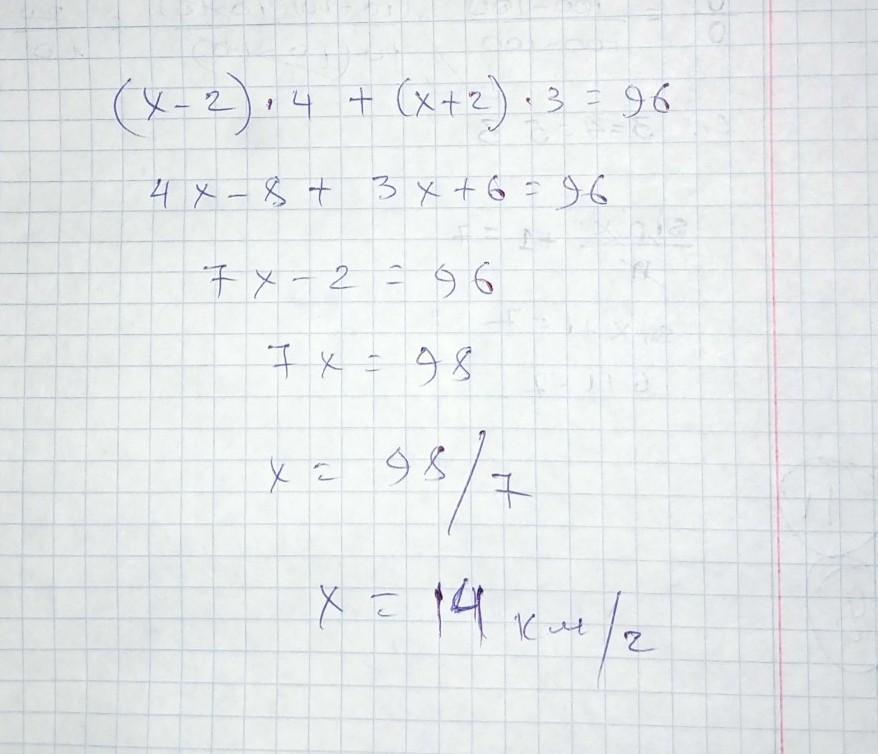 (x-2)·4 + (x+2)·3 = 96
4x-8+ 3x+6=96
7x-2 = 96
7x = 98
x = 98/7
x = 14 км/г